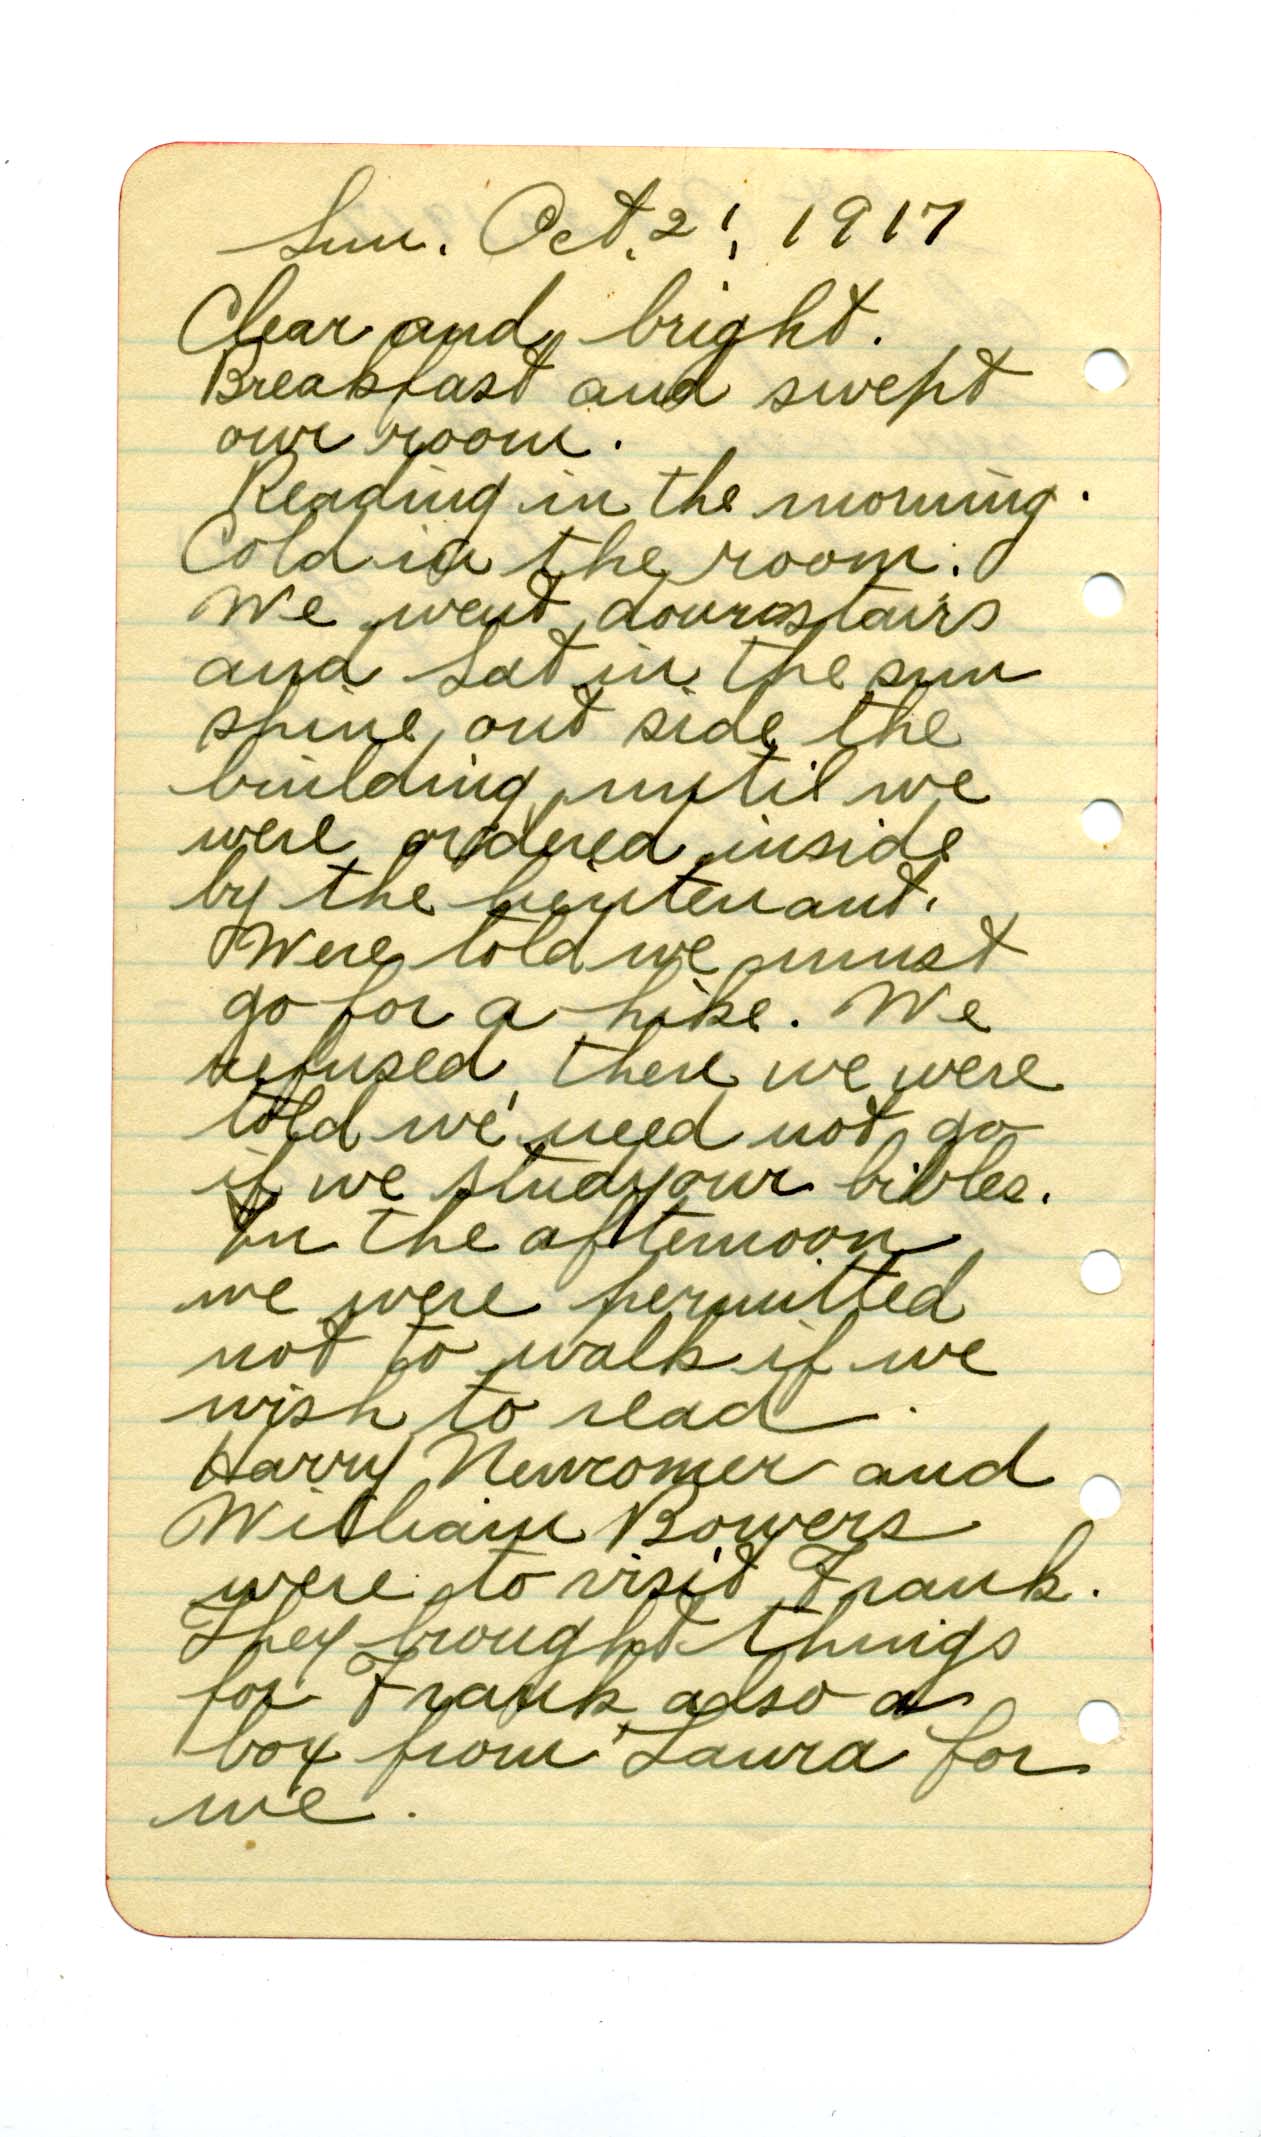 Sun. Oct. 21, 1917
Clear and bright.
Breakfast and swept
our room.
Reading in the morning.
Cold in the room.
We went downstairs
and sat in the sun
shine out side the
building until we
were ordered inside
by the lieutenant.
Were told we must
go for a hike. We
refused, then we were
told we need not go
if we study our bibles.
In the afternoon
we were permitted
not to walk if we
wish to read.
Harry Newcomer and
William Bowers
were to visit Frank.
They brought things
for Frank also a
box from Laura for
me.